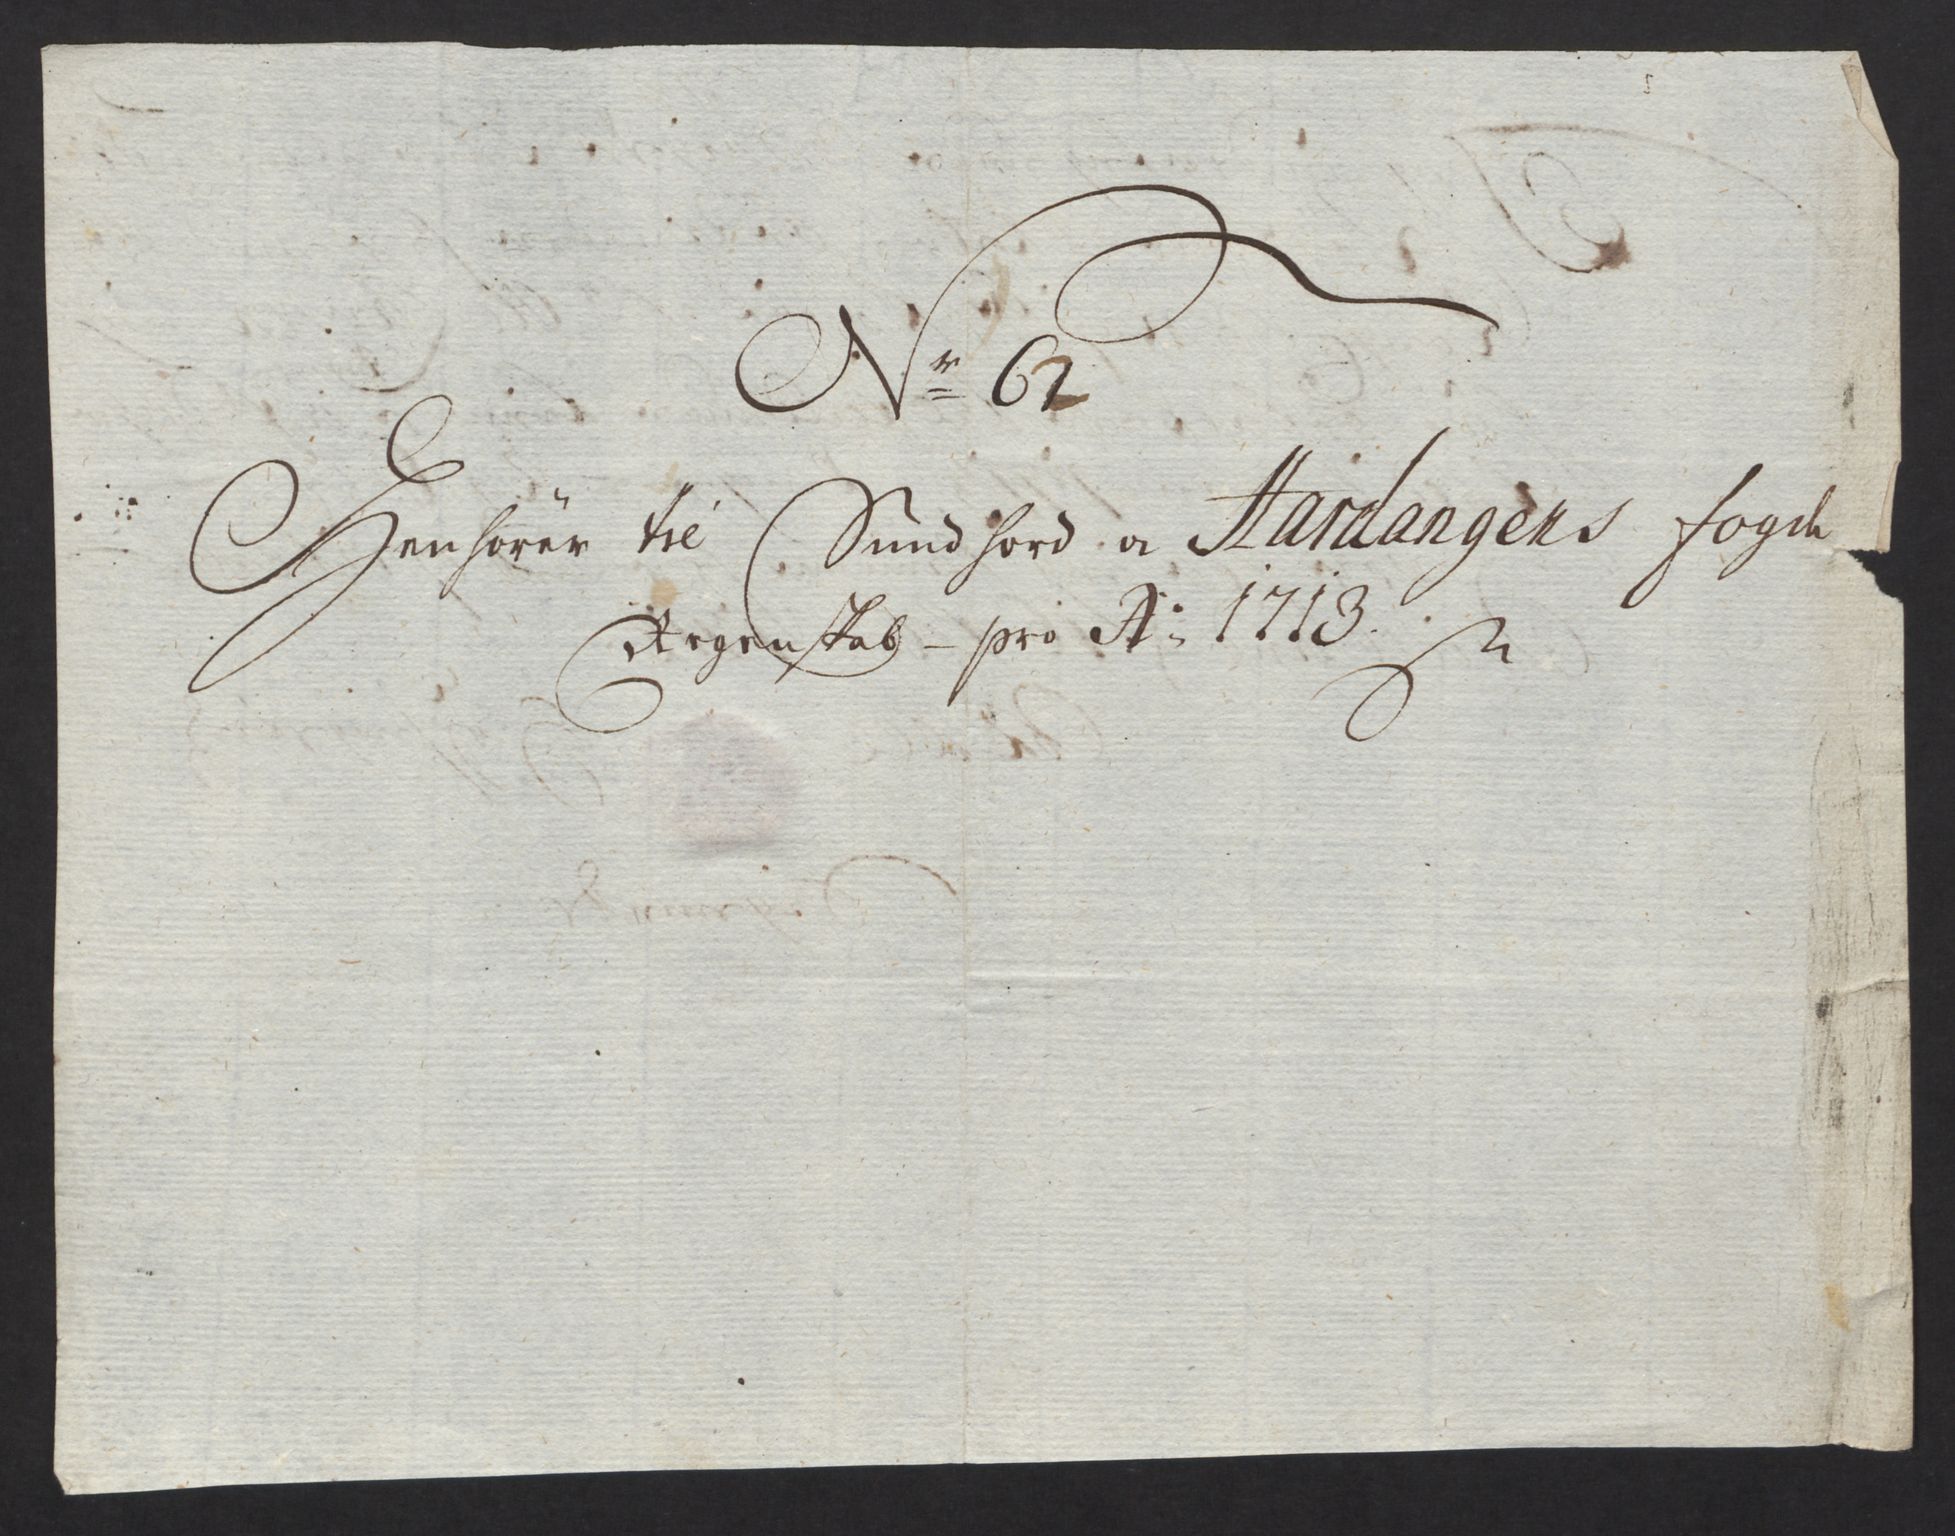 Nr 62
Henhører til Sundhord o Hardangers fogde
Regenskab – pro Ao: 1713.